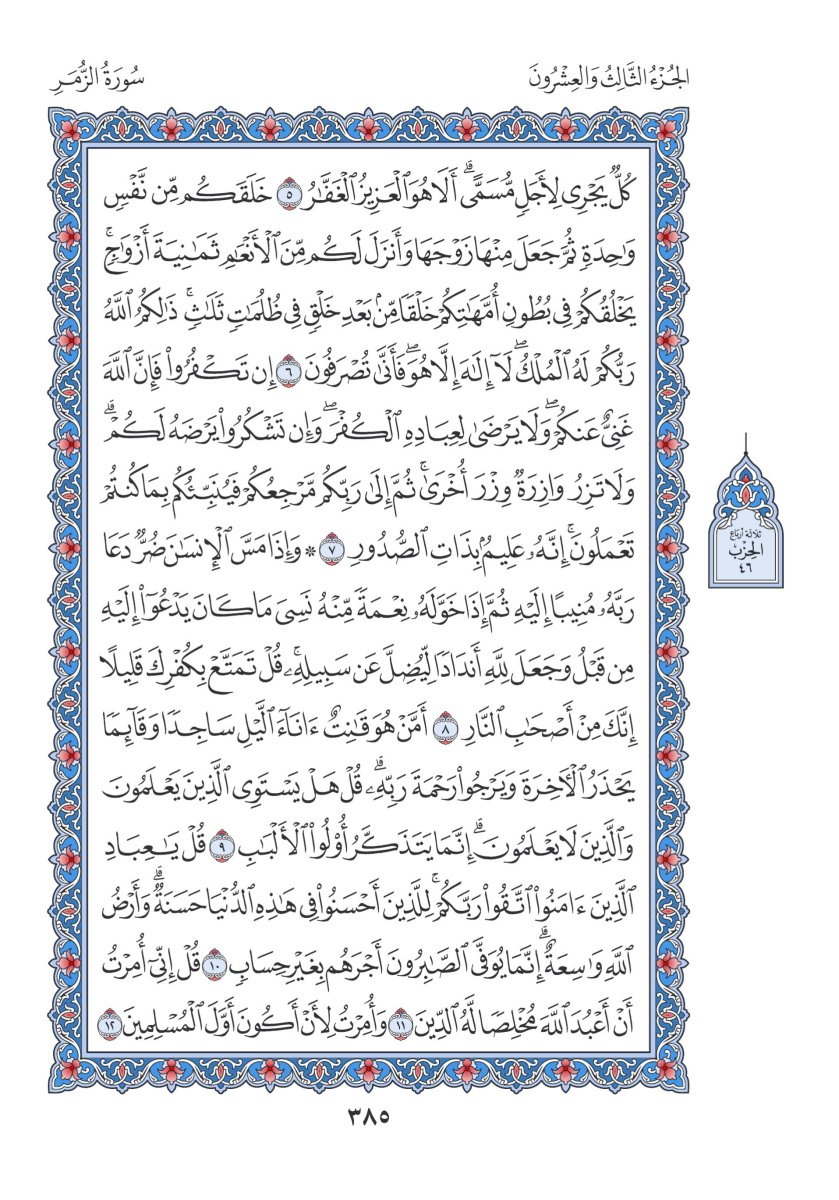 الجُزْءُ الثَّالِثُ وَالعِشْرُونَ
سُورَةُ الزُّمَرِ
كُلٌّ يَجْرِي لِأَجَلٍ مُّسَمًّىۗ أَلَا هُوَ ٱلْعَزِيزُ ٱلْغَفَّٰرُ ٥ خَلَقَكُم مِّن نَّفْسٍ
وَٰحِدَةٍ ثُمَّ جَعَلَ مِنْهَا زَوْجَهَا وَأَنزَلَ لَكُم مِّنَ ٱلْأَنْعَٰمِ ثَمَٰنِيَةَ أَزْوَٰجٍۚ
يَخْلُقُكُمْ فِي بُطُونِ أُمَّهَٰتِكُمْ خَلْقًا مِّنۢ بَعْدِ خَلْقٍ فِي ظُلُمَٰتٍ ثَلَٰثٍۚ ذَٰلِكُمُ ٱللَّهُ
رَبُّكُمْ لَهُ ٱلْمُلْكُۖ لَآ إِلَٰهَ إِلَّا هُوَۖ فَأَنَّىٰ تُصْرَفُونَ ٦ إِن تَكْفُرُوا۟ فَإِنَّ ٱللَّهَ
غَنِيٌّ عَنكُمْۖ وَلَا يَرْضَىٰ لِعِبَادِهِ ٱلْكُفْرَۖ وَإِن تَشْكُرُوا۟ يَرْضَهُ لَكُمْۗ
وَلَا تَزِرُ وَازِرَةٌ وِزْرَ أُخْرَىٰۚ ثُمَّ إِلَىٰ رَبِّكُم مَّرْجِعُكُمْ فَيُنَبِّئُكُم بِمَا كُنتُمْ
تَعْمَلُونَۚ إِنَّهُۥ عَلِيمٌۢ بِذَاتِ ٱلصُّدُورِ ٧ ۞ وَإِذَا مَسَّ ٱلْإِنسَٰنَ ضُرٌّ دَعَا
رَبَّهُۥ مُنِيبًا إِلَيْهِ ثُمَّ إِذَا خَوَّلَهُۥ نِعْمَةً مِّنْهُ نَسِيَ مَا كَانَ يَدْعُوٓا۟ إِلَيْهِ
مِن قَبْلُ وَجَعَلَ لِلَّهِ أَندَادًا لِّيُضِلَّ عَن سَبِيلِهِۦۚ قُلْ تَمَتَّعْ بِكُفْرِكَ قَلِيلًا
إِنَّكَ مِنْ أَصْحَٰبِ ٱلنَّارِ ٨ أَمَّنْ هُوَ قَٰنِتٌ ءَانَآءَ ٱلَّيْلِ سَاجِدًا وَقَآئِمًا
يَحْذَرُ ٱلْءَاخِرَةَ وَيَرْجُوا۟ رَحْمَةَ رَبِّهِۦۗ قُلْ هَلْ يَسْتَوِي ٱلَّذِينَ يَعْلَمُونَ
وَٱلَّذِينَ لَا يَعْلَمُونَۗ إِنَّمَا يَتَذَكَّرُ أُو۟لُوا۟ ٱلْأَلْبَٰبِ ٩ قُلْ يَٰعِبَادِ
ٱلَّذِينَ ءَامَنُوا۟ ٱتَّقُوا۟ رَبَّكُمْۚ لِلَّذِينَ أَحْسَنُوا۟ فِي هَٰذِهِ ٱلدُّنْيَا حَسَنَةٌۗ وَأَرْضُ
ٱللَّهِ وَٰسِعَةٌۗ إِنَّمَا يُوَفَّى ٱلصَّٰبِرُونَ أَجْرَهُم بِغَيْرِ حِسَابٍ ١٠ قُلْ إِنِّيٓ أُمِرْتُ
أَنْ أَعْبُدَ ٱللَّهَ مُخْلِصًا لَّهُ ٱلدِّينَ ١١ وَأُمِرْتُ لِأَنْ أَكُونَ أَوَّلَ ٱلْمُسْلِمِينَ ١٢
ثلاثة أرباع
الحِزْب
٤٦
٣٨٥